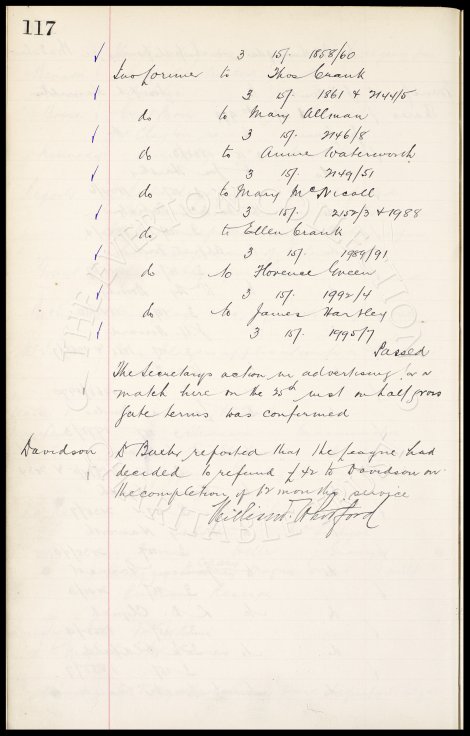 117
✓ 3 15/- 1858/60
Two former to Thos Crank
✓ 3 15/- 1861 & 2144/5
do to Mary Allman
✓ 3 15/- 2146/8
do to Annie Waterworth
✓ 3 15/- 2149/51
do to Mary McNicoll
✓ 3 15/- 2152/3 & 1988
do to Ellen Crank
✓ 3 15/- 1989/91
do to Florence Green
✓ 3 15/- 1992/4
do to James Hartley
✓ 3 15/- 1995/7
Passed
The Secretarys action in advertising for a
match here on the 25th inst on half gross
gate terms was confirmed
Davidson Dr Baxter reported that the League had
decided to refund £42 to Davidson on
the completion of 12 months service